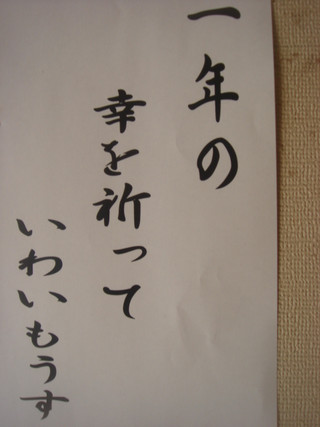 一年の
幸を祈って
いわいもうす